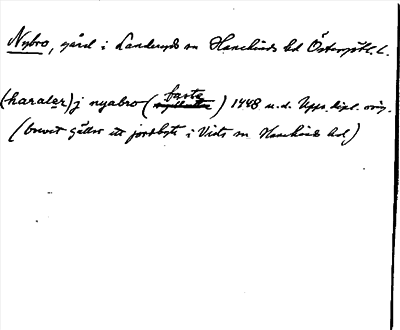 Nybro, gård i Landeryds sn Hanekinds hd Östergötl. l.
(haraler) j nyabro (faste) 1448 u.d. Upps. dipl. orig.
(brevet gäller ett jordbyte i Vists sn Hanekinds hd)